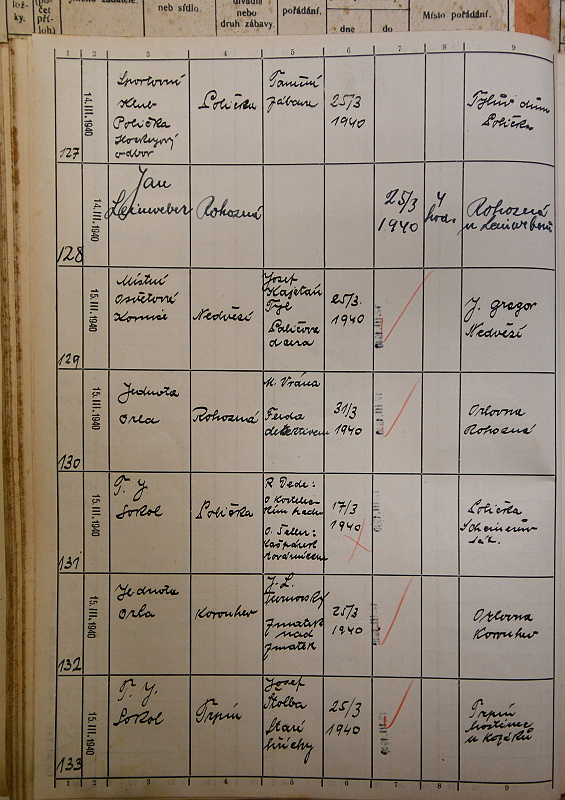 neb sídlo.
divadla
nebo
druh zábavy.
pořádání.
dne
do
Místo pořádání.
1 2 3 4 5 6 7 8 9
127
14.III.1940
Sportovní
Klub
Polička
Hockeyový
odbor
Polička
Taneční
zábava
25/3
1940
Tylův dům
Polička
128
14.III.1940
Jan
Leinweber
Rohozná
25/3
1940
4
hod.
Rohozná
u
129
15.III.1940
Místní
Osvětová
Komise
Nedvězí
Josef
Kajetán
Tyl
Paličova
dcera
25/3
1940
J. gregor
Nedvězí
130
15.III.1940
Jednota
Orla
Rohozná
K. Vrána
Ferda
detektivem
31/3
1940
Orlovna
Rohozná
131
15.III.1940
T. J.
Sokol
Polička
R Dede:
O
O. Seller:
Kašpárek
17/3
1940
Polička
Scheinerův
sál.
132
15.III.1940
Jednota
Orla
Korouhev
J. L.
Turnovský
zmatek
nad
zmatek
25/3
1940
Orlovna
Korouhev
133
15.III.1940
T. J.
Sokol
Trpín
Josef
Štolba
Staří
hříchy
25/3
1940
Trpín
hostinec
u Kozáků
1 2 3 4 5 6 7 8 9